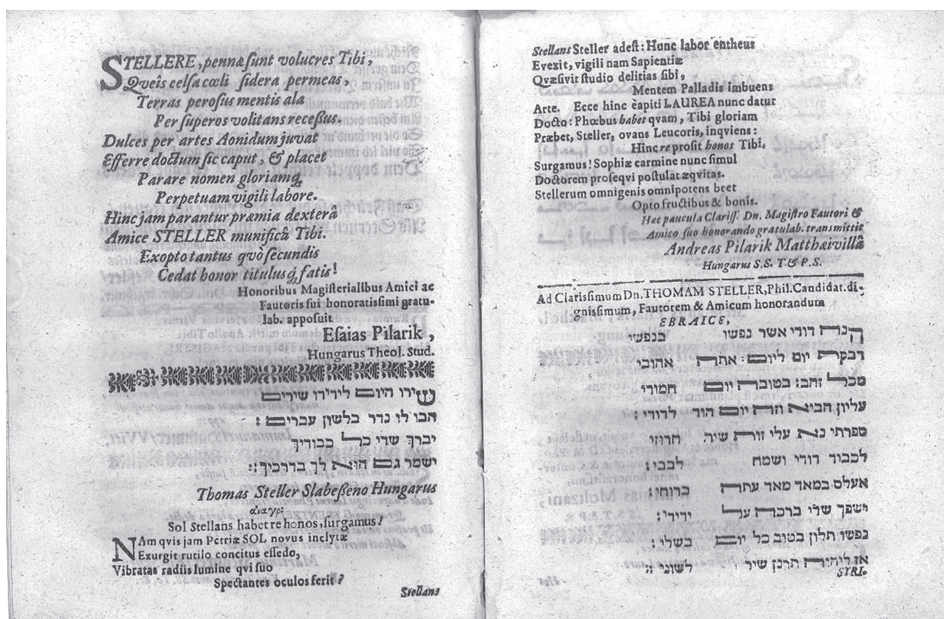 STELLERE, pennæ sunt volucres Tibi,
Qveîs celsa cœli sidera permeas,
Terras perosus mentis ala
Per superos volitans recessus.
Dulces per artes Aonidum juvat
Efferre doctum sic caput, & placet
Parare nomen gloriamq́;
Perpetuam vigili labore.
Hinc jam parantur præmia dexterâ
Amice STELLER munificâ Tibi.
Exopto tantus qvò secundis
Cedat honor titulusq́; fatis!
Honoribus Magisterialibus Amici ac
Fautoris sui honoratissimi gratu-
lab. apposuit
Esaias Pilarik,
Hungarus Theol. Stud.
שירו היום לידידו שירים
הבו לו נדר בלשון עברים:
יברך שדי כל כבודיך
ישמר גם הוא לך בדרכיך:
Thomas Steller Slabesseno Hungarus
Sol Stellans habet re honos, surgamus!
NAm qvis jam Petriæ SOL novus inclytæ
Exurgit rutilo concitus essedo,
Vibratas radiis lumine qvi suo
Spectantes oculos ferit?
Stellans
Stellans Steller adest: Hunc labor entheus
Evexit, vigili nam Sapientiæ
Qvæsivit studio delitias sibi,
Mentem Palladis imbuens
Arte. Ecce hinc capiti LAUREA nunc datur
Docto: Phœbus habet qvam, Tibi gloriam
Præbet, Steller, ovans Leucoris, inqviens:
Hinc re prosit honos Tibi.
Surgamus! Sophiæ carmine nunc simul
Doctorem proseqvi postulat æqvitas.
Stellerum omnigenis omnipotens beet
Opto fructibus & bonis.
Hæc paucula Clariss. Dn. Magistro Fautori &
Amico suo honorando gratulab. transmittit
Andreas Pilarik Matthæivillâ
Hungarus S.S. T. & P.S.
Ad Clarissimum Dn. THOMAM STELLER, Phil. Candidat. di-
gnissimum, Fautorem & Amicum honorandum
EBRAICE,
הנה דודי אשר נפשו בנפשי
דבקה יום ליום: אתה אהובי
מכל זהב: בטובה יום חמורי
עליון הביא וזה יום הוד לדודי:
ספרתי נא עלי זורת שיר חרוזי
לכבוד דודי ושמח לבבי:
אעלס במאד מאד עתה ברוחי:
וישפך שדי ברכה על ידידי:
נפשו תלון בטוב כל יום בשלי:
אז ליהיה תרנן שיר לשוני:
SYRI.